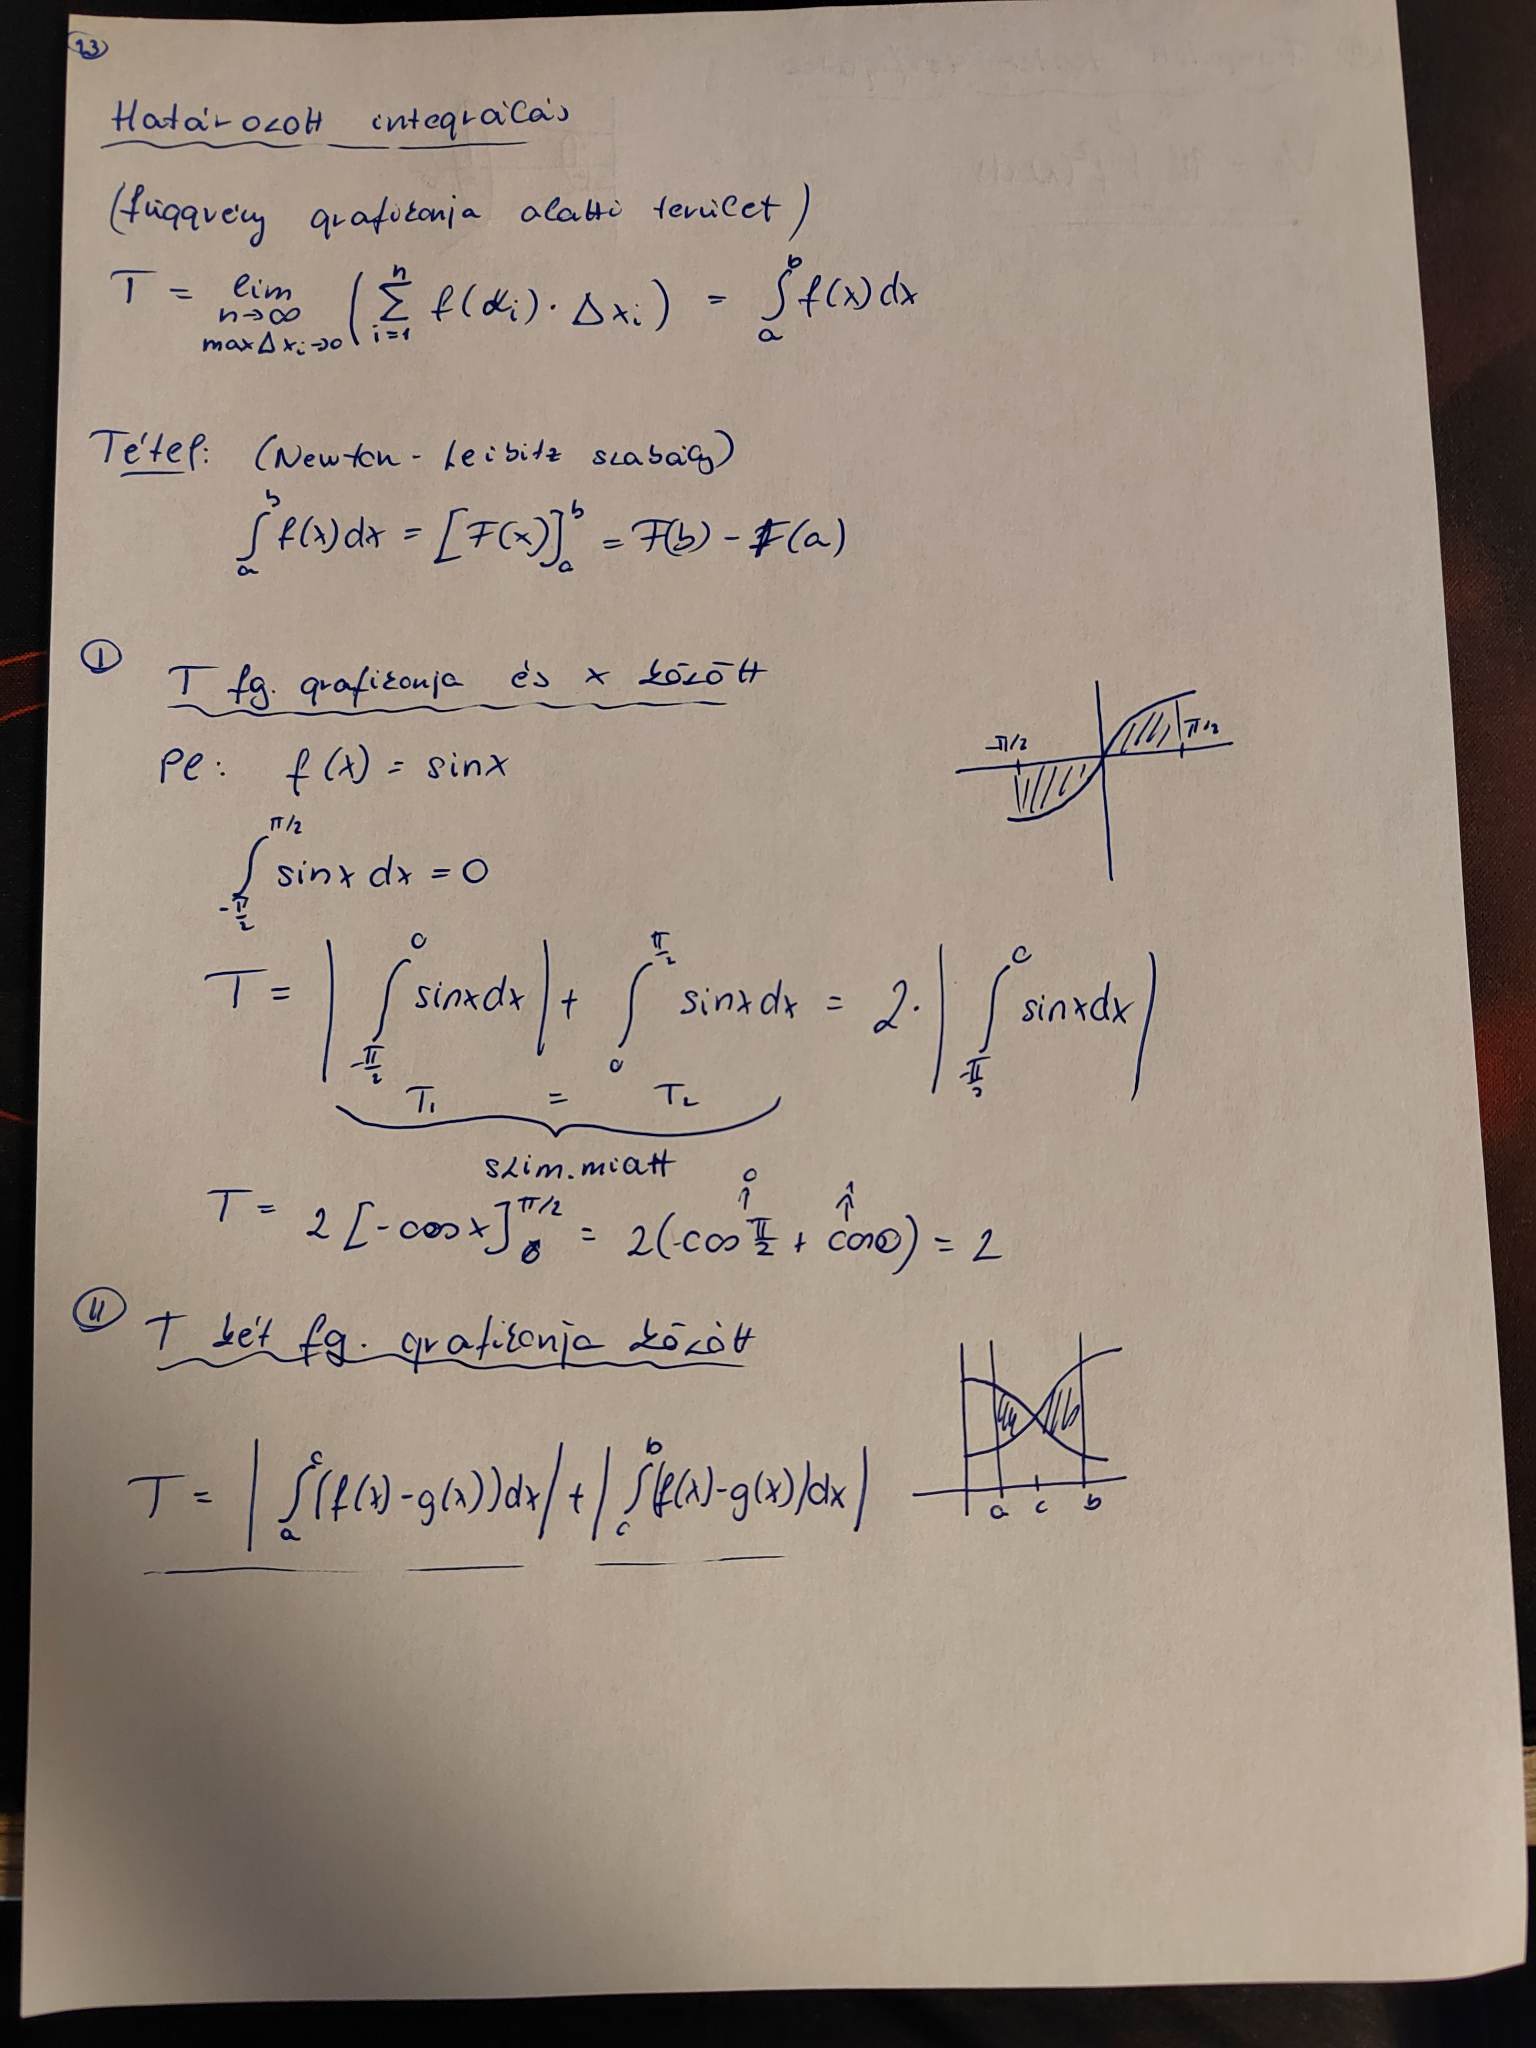 23
Határozott integrálás
(függvény grafikonja alatti terület)
T = lim n→∞ max Δxᵢ→0 (∑ i=1 n f(αᵢ)·Δxᵢ) = ∫ₐᵇ f(x)dx
Tétel: (Newton-Leibitz szabály)
∫ₐᵇ f(x)dx = [F(x)]ₐᵇ = F(b) - F(a)
I T fg. grafikonja és x között
-π/2 π/2
pl: f(x) = sinx
∫_{-π/2}^{π/2} sinx dx = 0
T = |∫_{-π/2}^{0} sinxdx| + ∫_{0}^{π/2} sinxdx = 2·|∫_{-π/2}^{0} sinxdx|
T₁ = T₂
szim. miatt
0 1
T = 2[-cosx]_{0}^{π/2} = 2(-cos π/2 + cos0) = 2
II T két fg. grafikonja között
T = |∫ₐᶜ (f(x)-g(x))dx| + |∫_c^b (f(x)-g(x))dx|
a c b